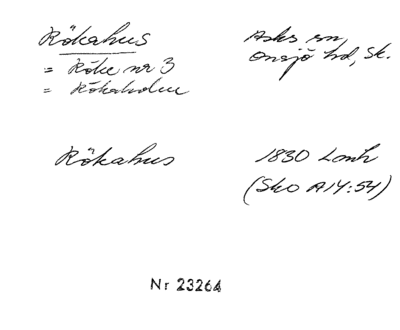 Rökahus
Asks sn,
Onsjö hd, Sk.
= Röke nr 3
= Rökaholm
Rökahus
1830 Lmh
(Sko A14:54)
Nr 23264